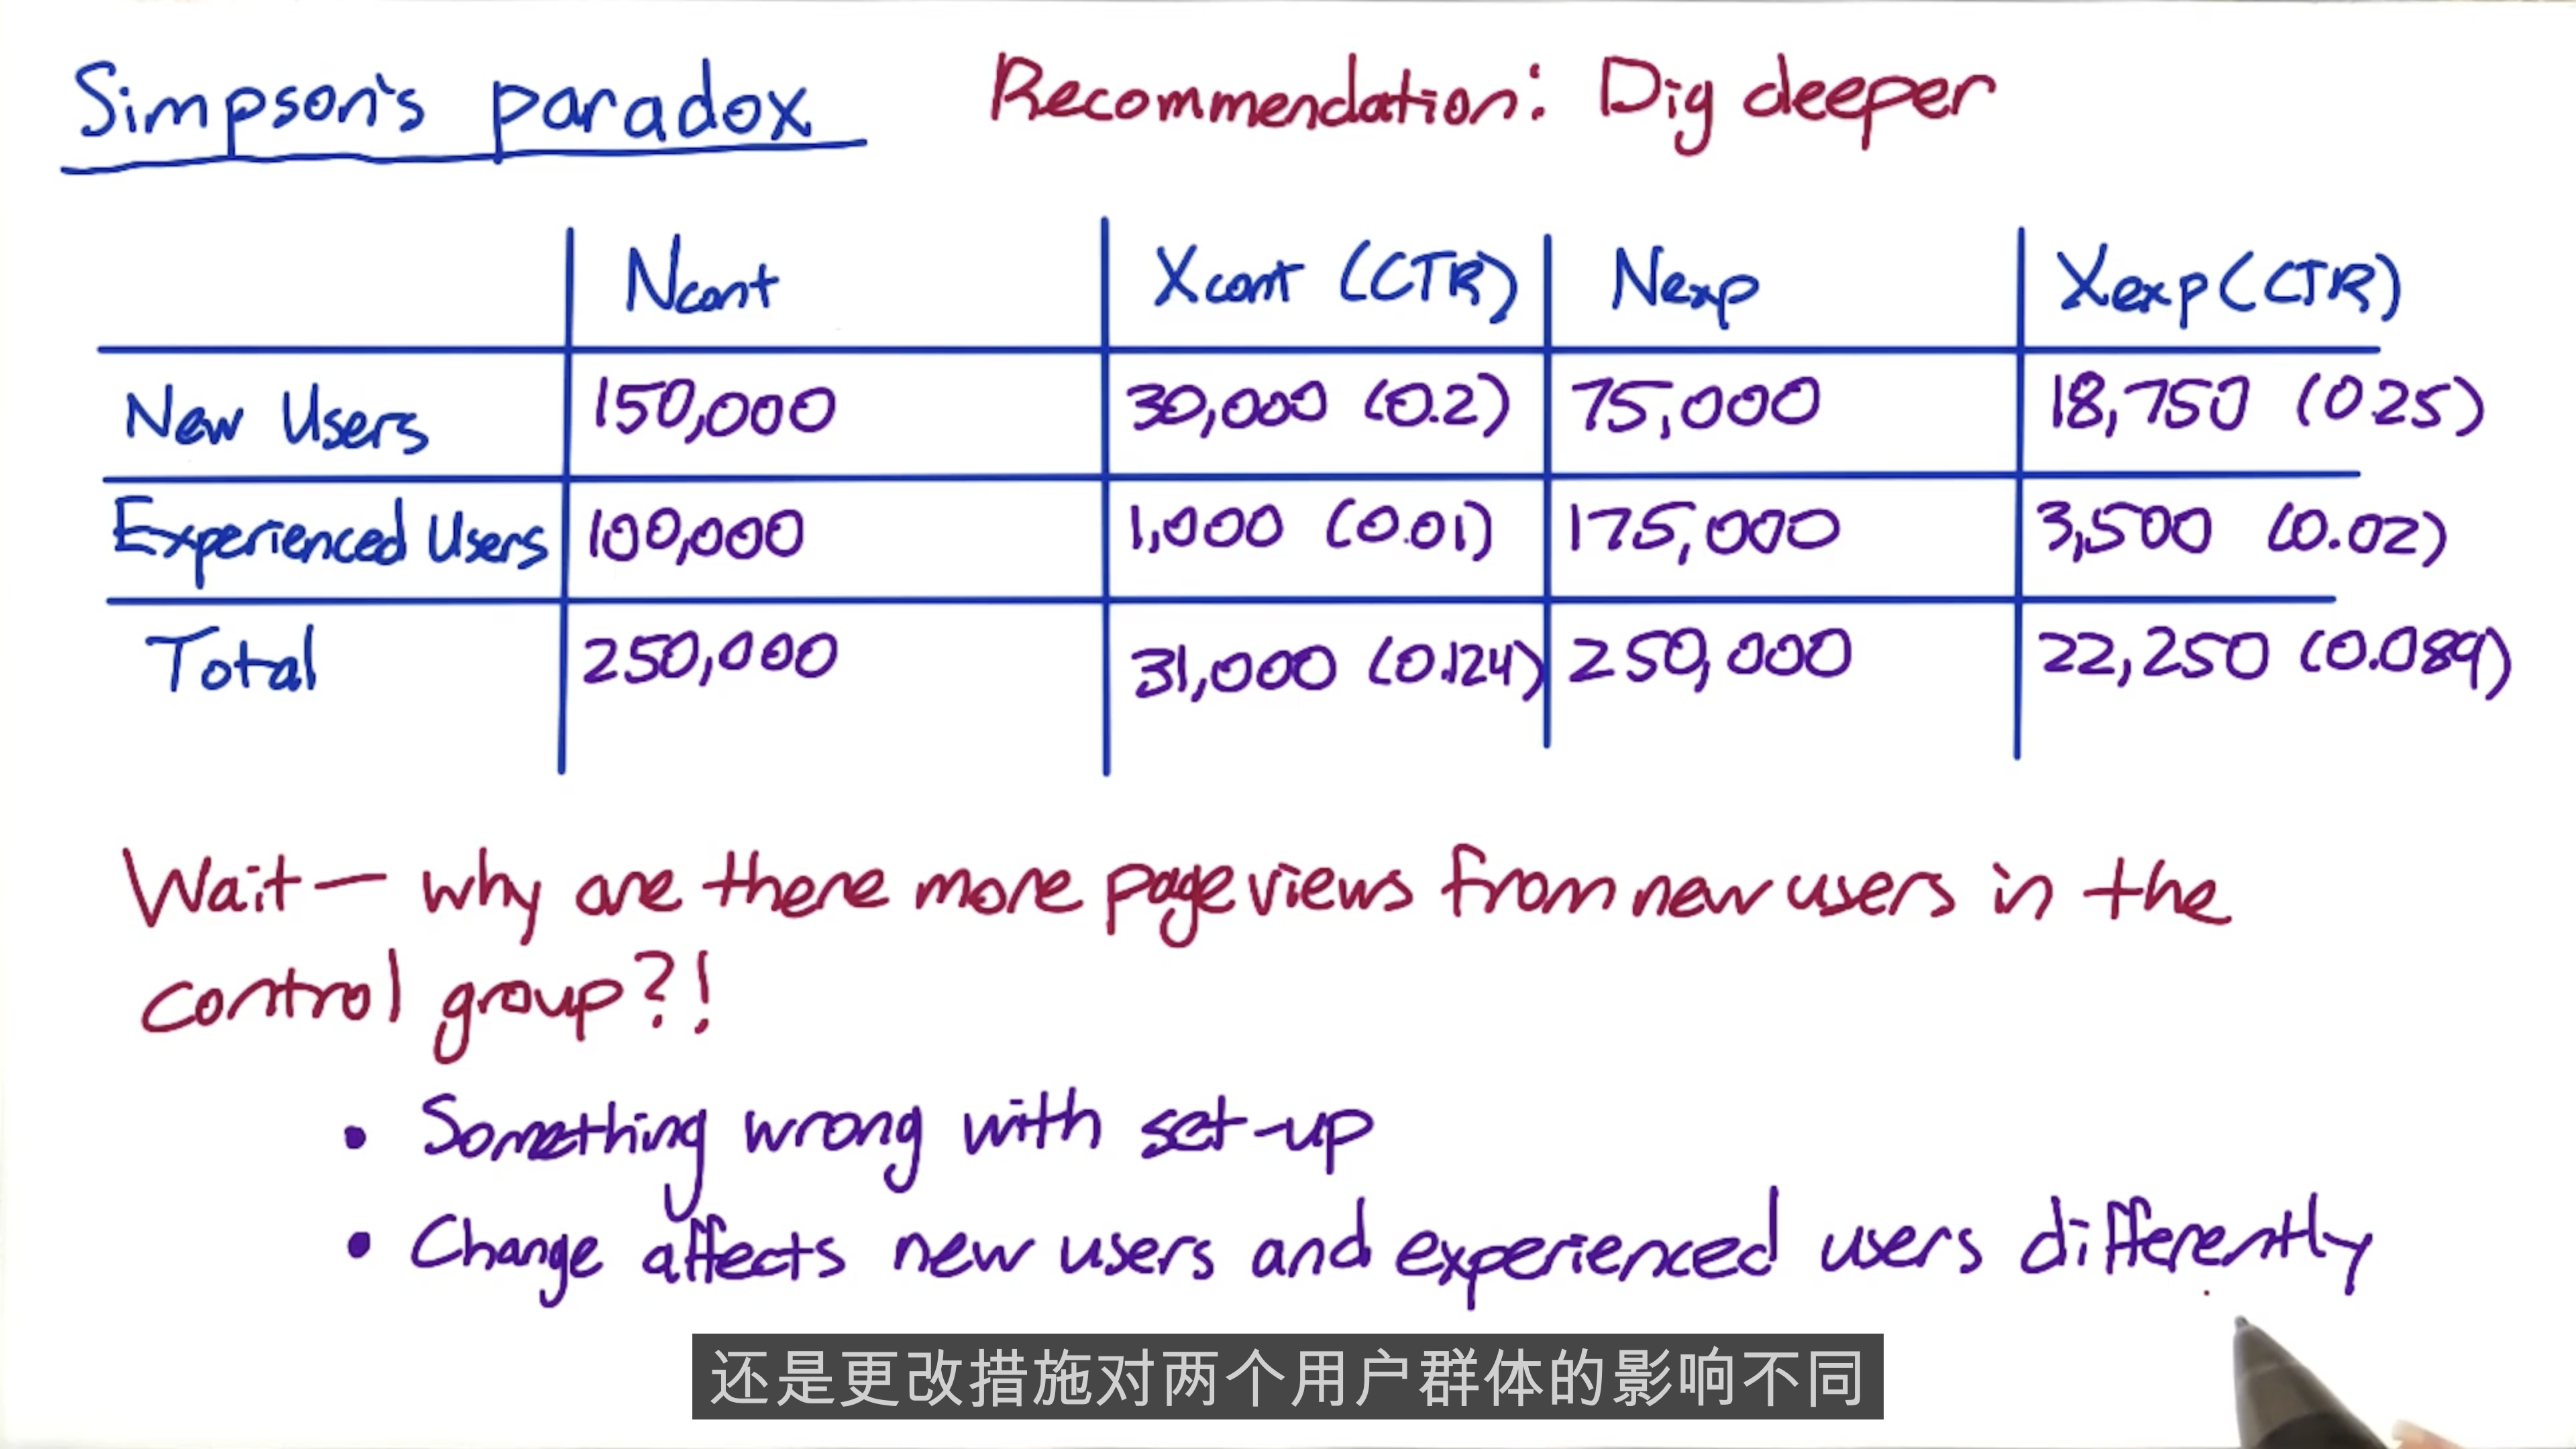 Simpson's paradox Recommendation: Dig deeper
Ncont Xcont (CTR) Nexp Xexp (CTR)
New Users 150,000 30,000 (0.2) 75,000 18,750 (0.25)
Experienced Users 100,000 1,000 (0.01) 175,000 3,500 (0.02)
Total 250,000 31,000 (0.124) 250,000 22,250 (0.089)
Wait — why are there more pageviews from new users in the
control group?!
• Something wrong with set-up
• Change affects new users and experienced users differently
还是更改措施对两个用户群体的影响不同